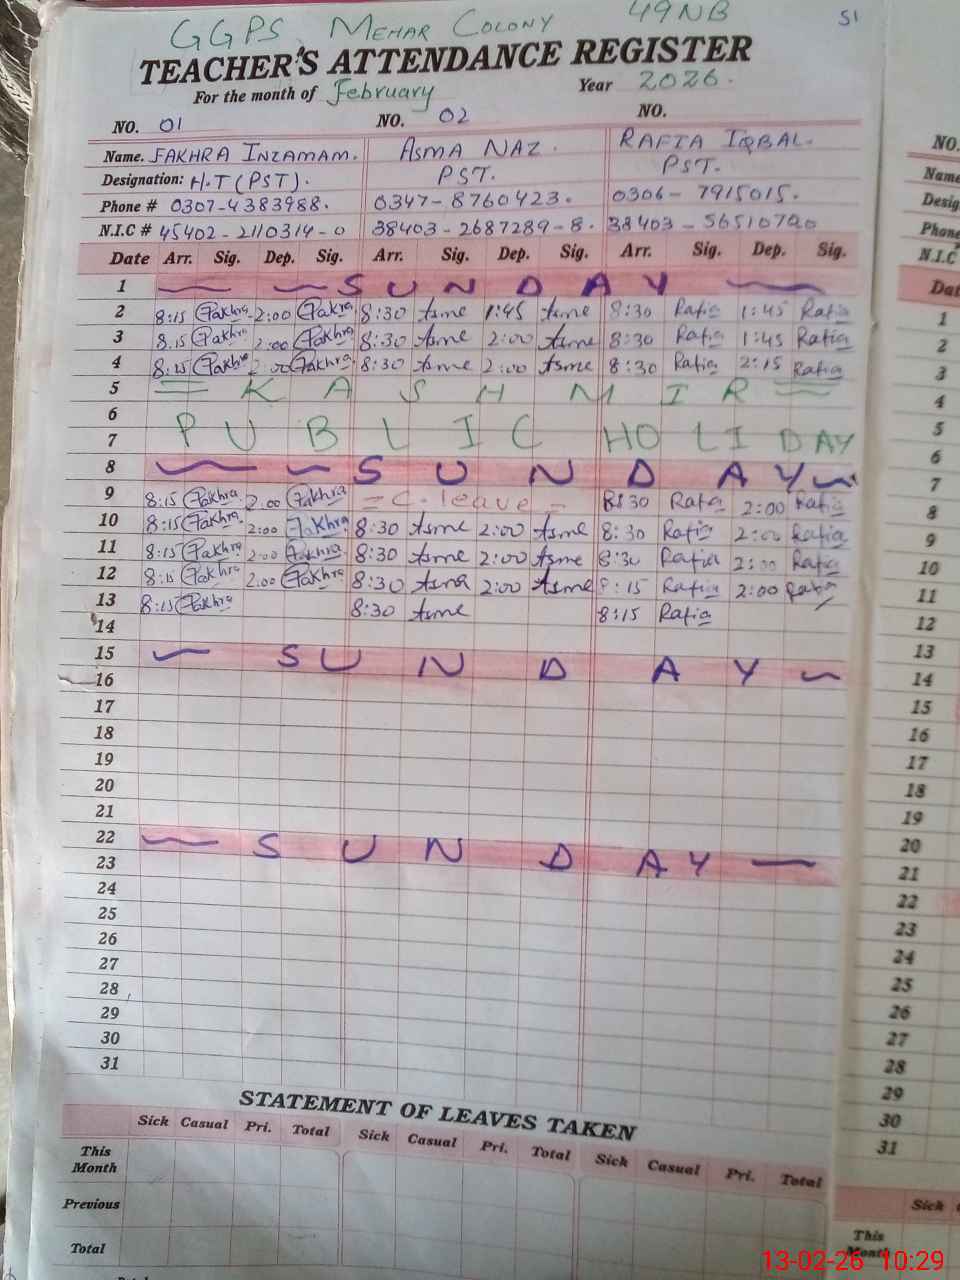 GGPS MEHAR COLONY 49NB
51
TEACHER'S ATTENDANCE REGISTER
For the month of February Year 2026.
NO. 01 NO. 02 NO.
Name. FAKHRA INZAMAM. ASMA NAZ. RAFIA IQBAL.
Designation: H.T (PST). PST. PST.
Phone # 0307-4383988. 0347-8760423. 0306-7915015.
N.I.C # 45402-2110314-0 38403-2687289-8. 38403-
Date Arr. Sig. Dep. Sig. Arr. Sig. Dep. Sig. Arr. Sig. Dep. Sig.
1 SUNDAY
2 8:15 Fakhra 2:00 Fakhra 8:30 Asma 1:45 Asma 8:30 Rafia 1:45 Rafia
3 8:15 Fakhra 2:00 Fakhra 8:30 Asma 2:00 Asma 8:30 Rafia 1:45 Rafia
4 8:15 Fakhra 2:00 Fakhra 8:30 Asma 2:00 Asma 8:30 Rafia 2:15 Rafia
5 = KASHMIR =
6
7 PUBLIC HOLIDAY
8 SUNDAY
9 8:15 Fakhra 2:00 Fakhra - C. leave - 8:30 Rafia 2:00 Rafia
10 8:15 Fakhra 2:00 Fakhra 8:30 Asma 2:00 Asma 8:30 Rafia 2:00 Rafia
11 8:15 Fakhra 2:00 Fakhra 8:30 Asma 2:00 Asma 8:30 Rafia 2:00 Rafia
12 8:15 Fakhra 2:00 Fakhra 8:30 Asma 2:00 Asma 8:15 Rafia 2:00 Rafia
13 8:15 Fakhra 8:30 Asma 8:15 Rafia
14
15 SUNDAY
16
17
18
19
20
21
22 SUNDAY
23
24
25
26
27
28
29
30
31
STATEMENT OF LEAVES TAKEN
Sick Casual Pri. Total Sick Casual Pri. Total Sick Casual Pri. Total
This Month
Previous
Total
NO.
Name
Desig
Phone
N.I.C
Dat
1
2
3
4
5
6
7
8
9
10
11
12
13
14
15
16
17
18
19
20
21
22
23
24
25
26
27
28
29
30
31
Sick
This
Month
13-02-26 10:29